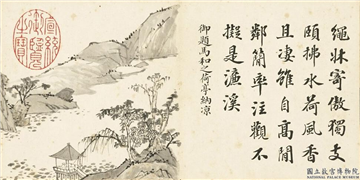 繩牀寄傲獨支
頤拂水荷風香
且凄雖自高閒
鄰蘭率注觀不
擬是濂溪
御題馬和之荷亭納凉
宣統御覽之寶
國立故宮博物院
NATIONAL PALACE MUSEUM